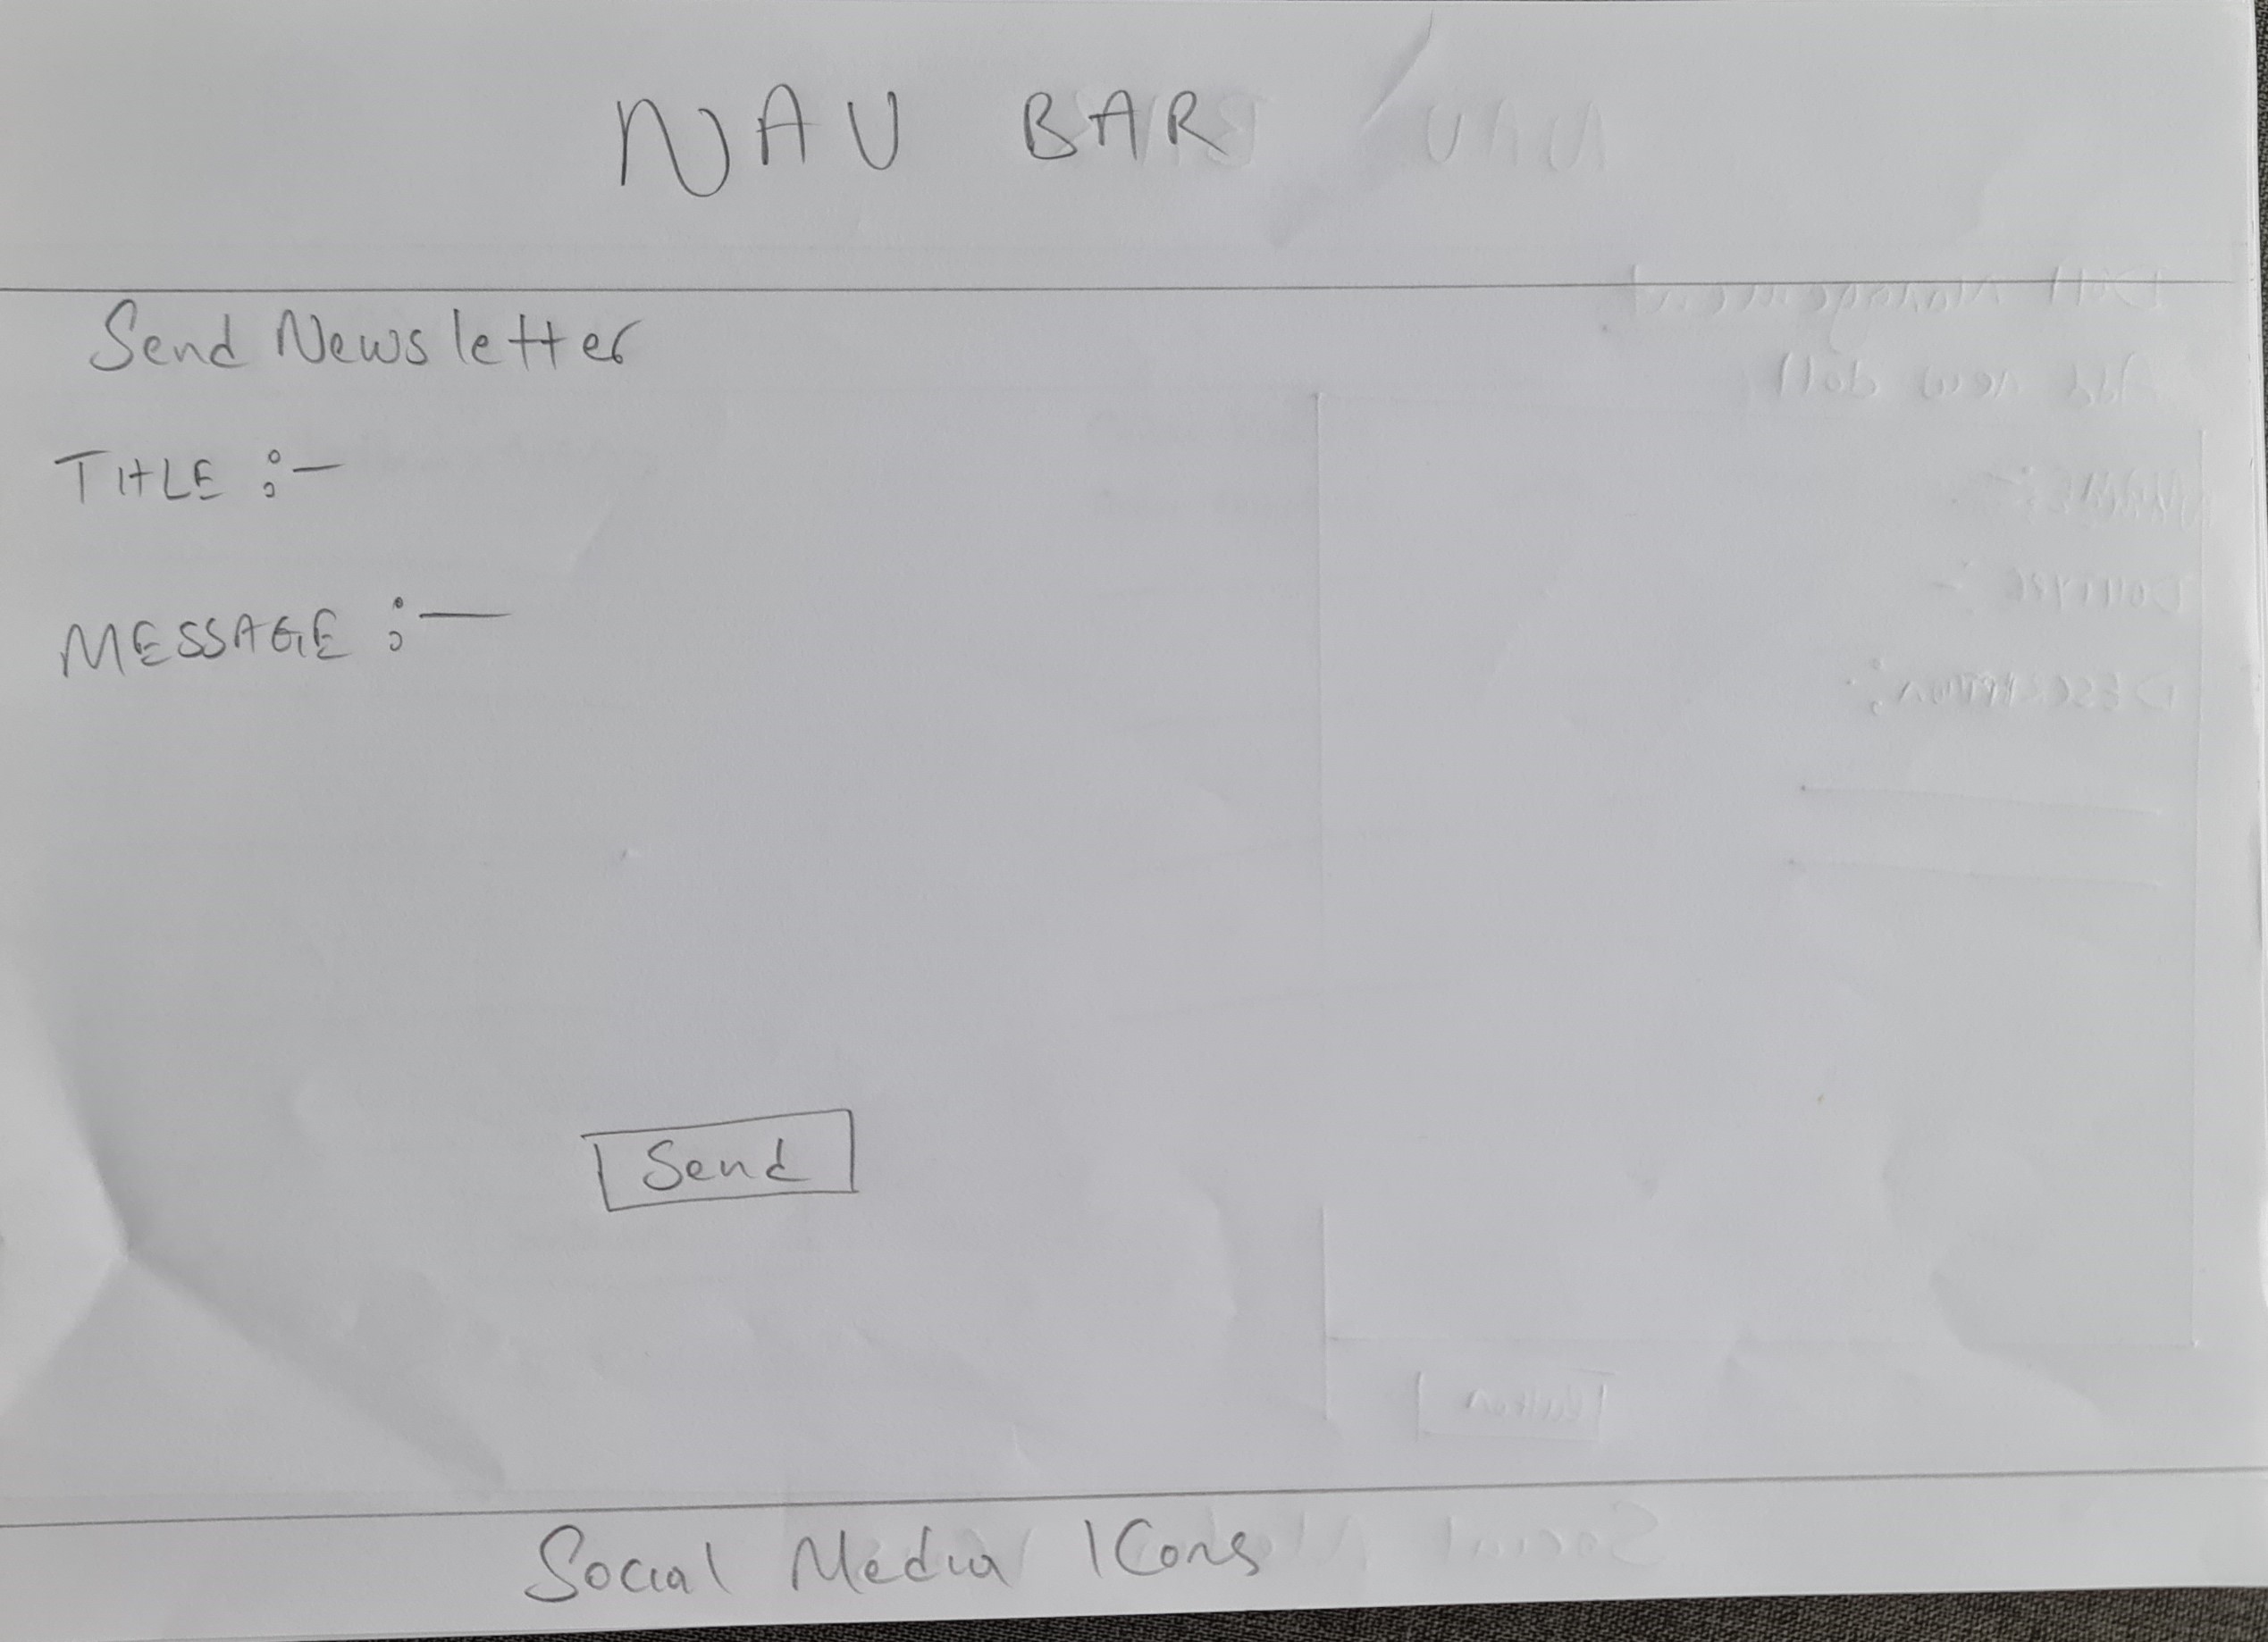 NAV BAR
Send Newsletter
TITLE :-
MESSAGE :-
Send
Social Media Icons